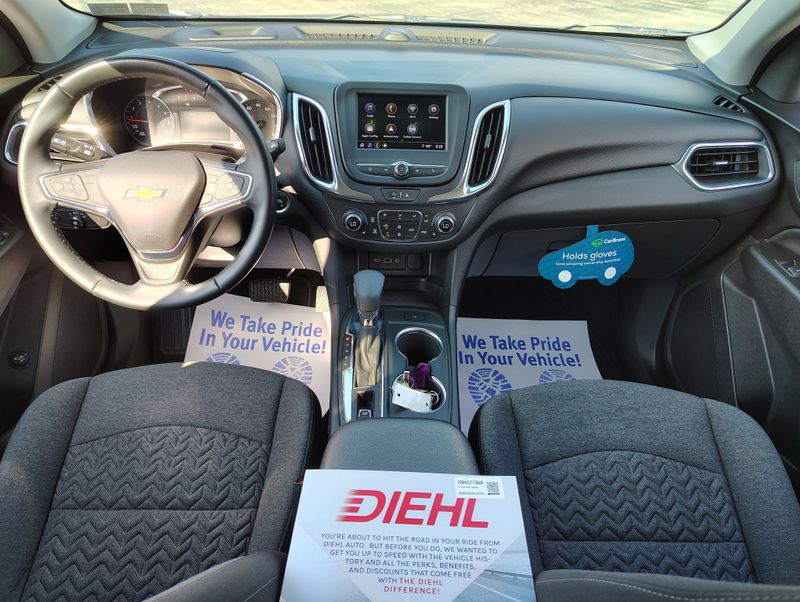 CarBravo
Holds gloves
(and amazing ownership benefits)
We Take Pride
In Your Vehicle!
We Take Pride
In Your Vehicle!
26HC2736A
DIEHL
YOU'RE ABOUT TO HIT THE ROAD IN YOUR RIDE FROM
DIEHL AUTO. BUT BEFORE YOU DO, WE WANTED TO
GET YOU UP TO SPEED WITH THE VEHICLE HIS-
TORY AND ALL THE PERKS, BENEFITS,
AND DISCOUNTS THAT COME FREE
WITH THE DIEHL
DIFFERENCE!